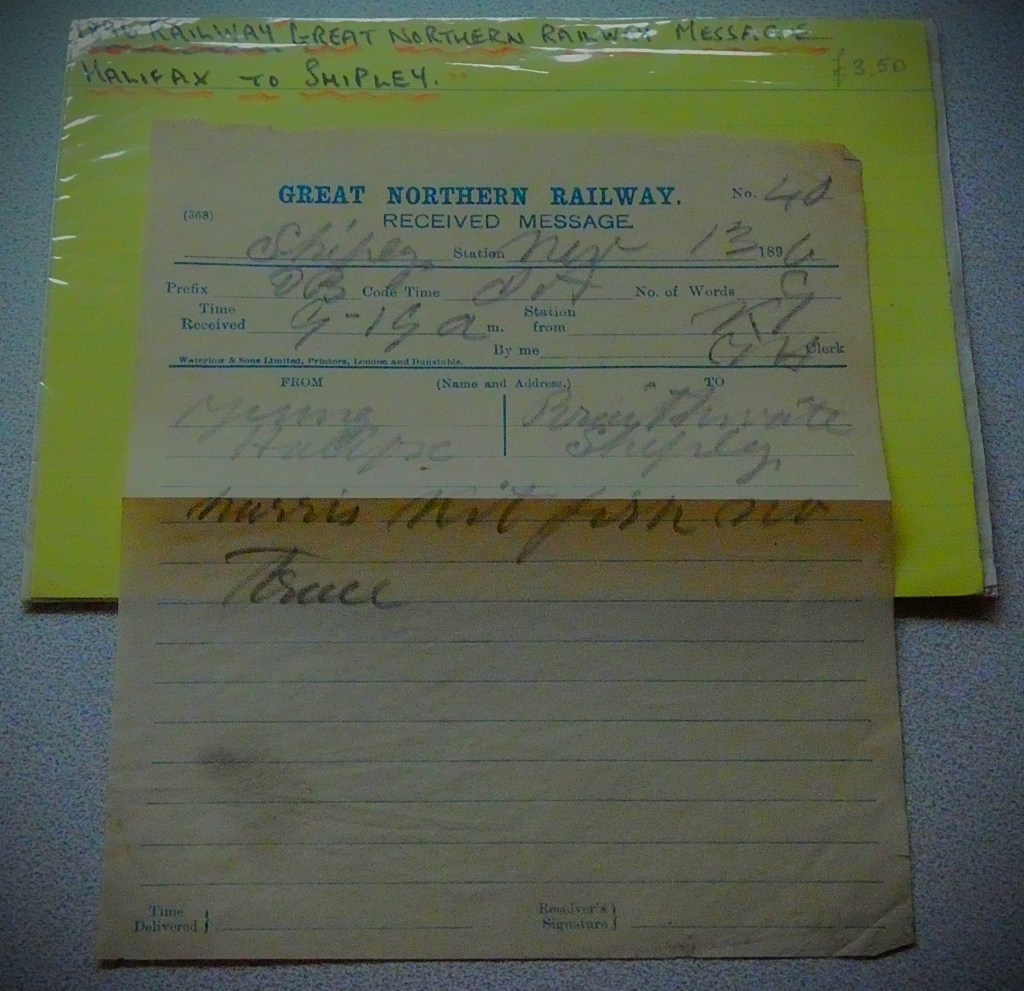 1896 RAILWAY GREAT NORTHERN RAILWAY MESSAGE
HALIFAX TO SHIPLEY.
£3.50
GREAT NORTHERN RAILWAY.
No. 40
(368)
RECEIVED MESSAGE.
Shipley Station Nov 13 1896
Prefix DB Code Time No. of Words 9
Time Received 9-19 a m. Station from
By me Clerk
Waterlow & Sons Limited, Printers, London and Dunstable.
FROM (Name and Address.) TO
Young Braithwaite
Halifax Shipley
harris Kit fish no
Trace
Time Delivered }
Receiver's Signature }